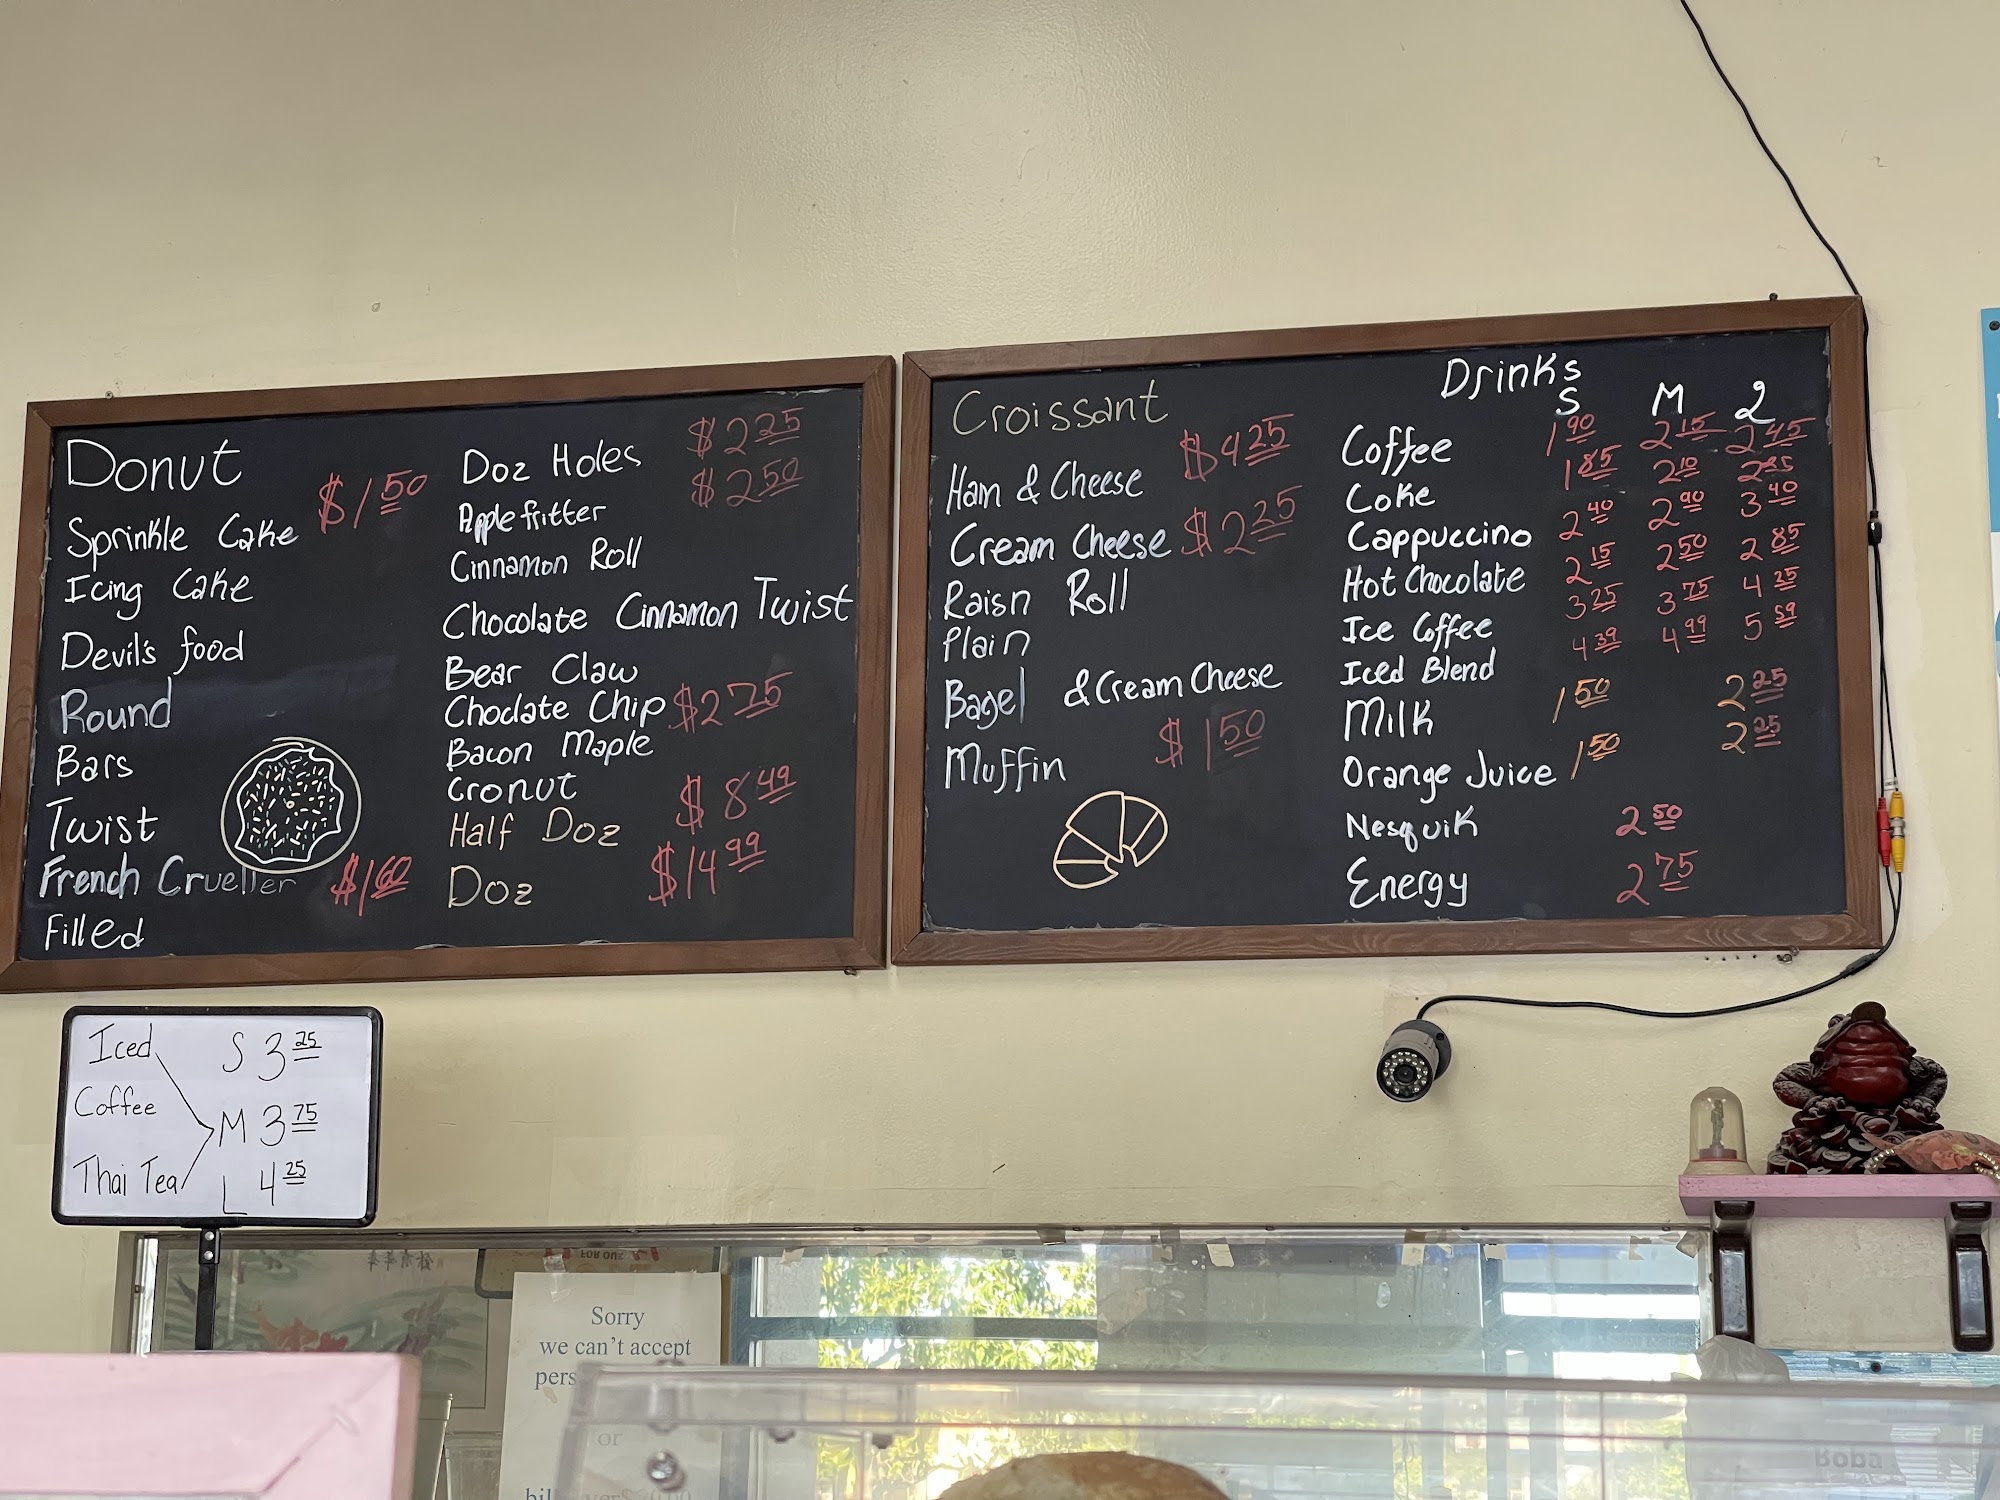 Donut
Sprinkle Cake $1 50
Icing Cake
Devil's food
Round
Bars
Twist
French Crueller $1 60
Filled
Doz Holes $2 25
Apple fritter $2 50
Cinnamon Roll
Chocolate Cinnamon Twist
Bear Claw
Choclate Chip $2 75
Bacon Maple
Cronut
Half Doz $8 49
Doz $14 99
Croissant
Ham & Cheese $4 25
Cream Cheese $2 25
Raisn Roll
Plain
Bagel & Cream Cheese
Muffin $1 50
Drinks
S M L
Coffee 1 90 2 15 2 45
Coke 1 85 2 10
Cappuccino 2 40 2 90 3 40
Hot Chocolate 2 15 2 50 2 85
Ice Coffee 3 25 3 75 4 25
Iced Blend 4 39 4 99 5 59
Milk 1 50 2 25
Orange Juice 1 50 2 25
Nesquik 2 50
Energy 2 75
Iced S 3 25
Coffee M 3 75
Thai Tea L 4 25
FOR OUR
Sorry
we can't accept
or